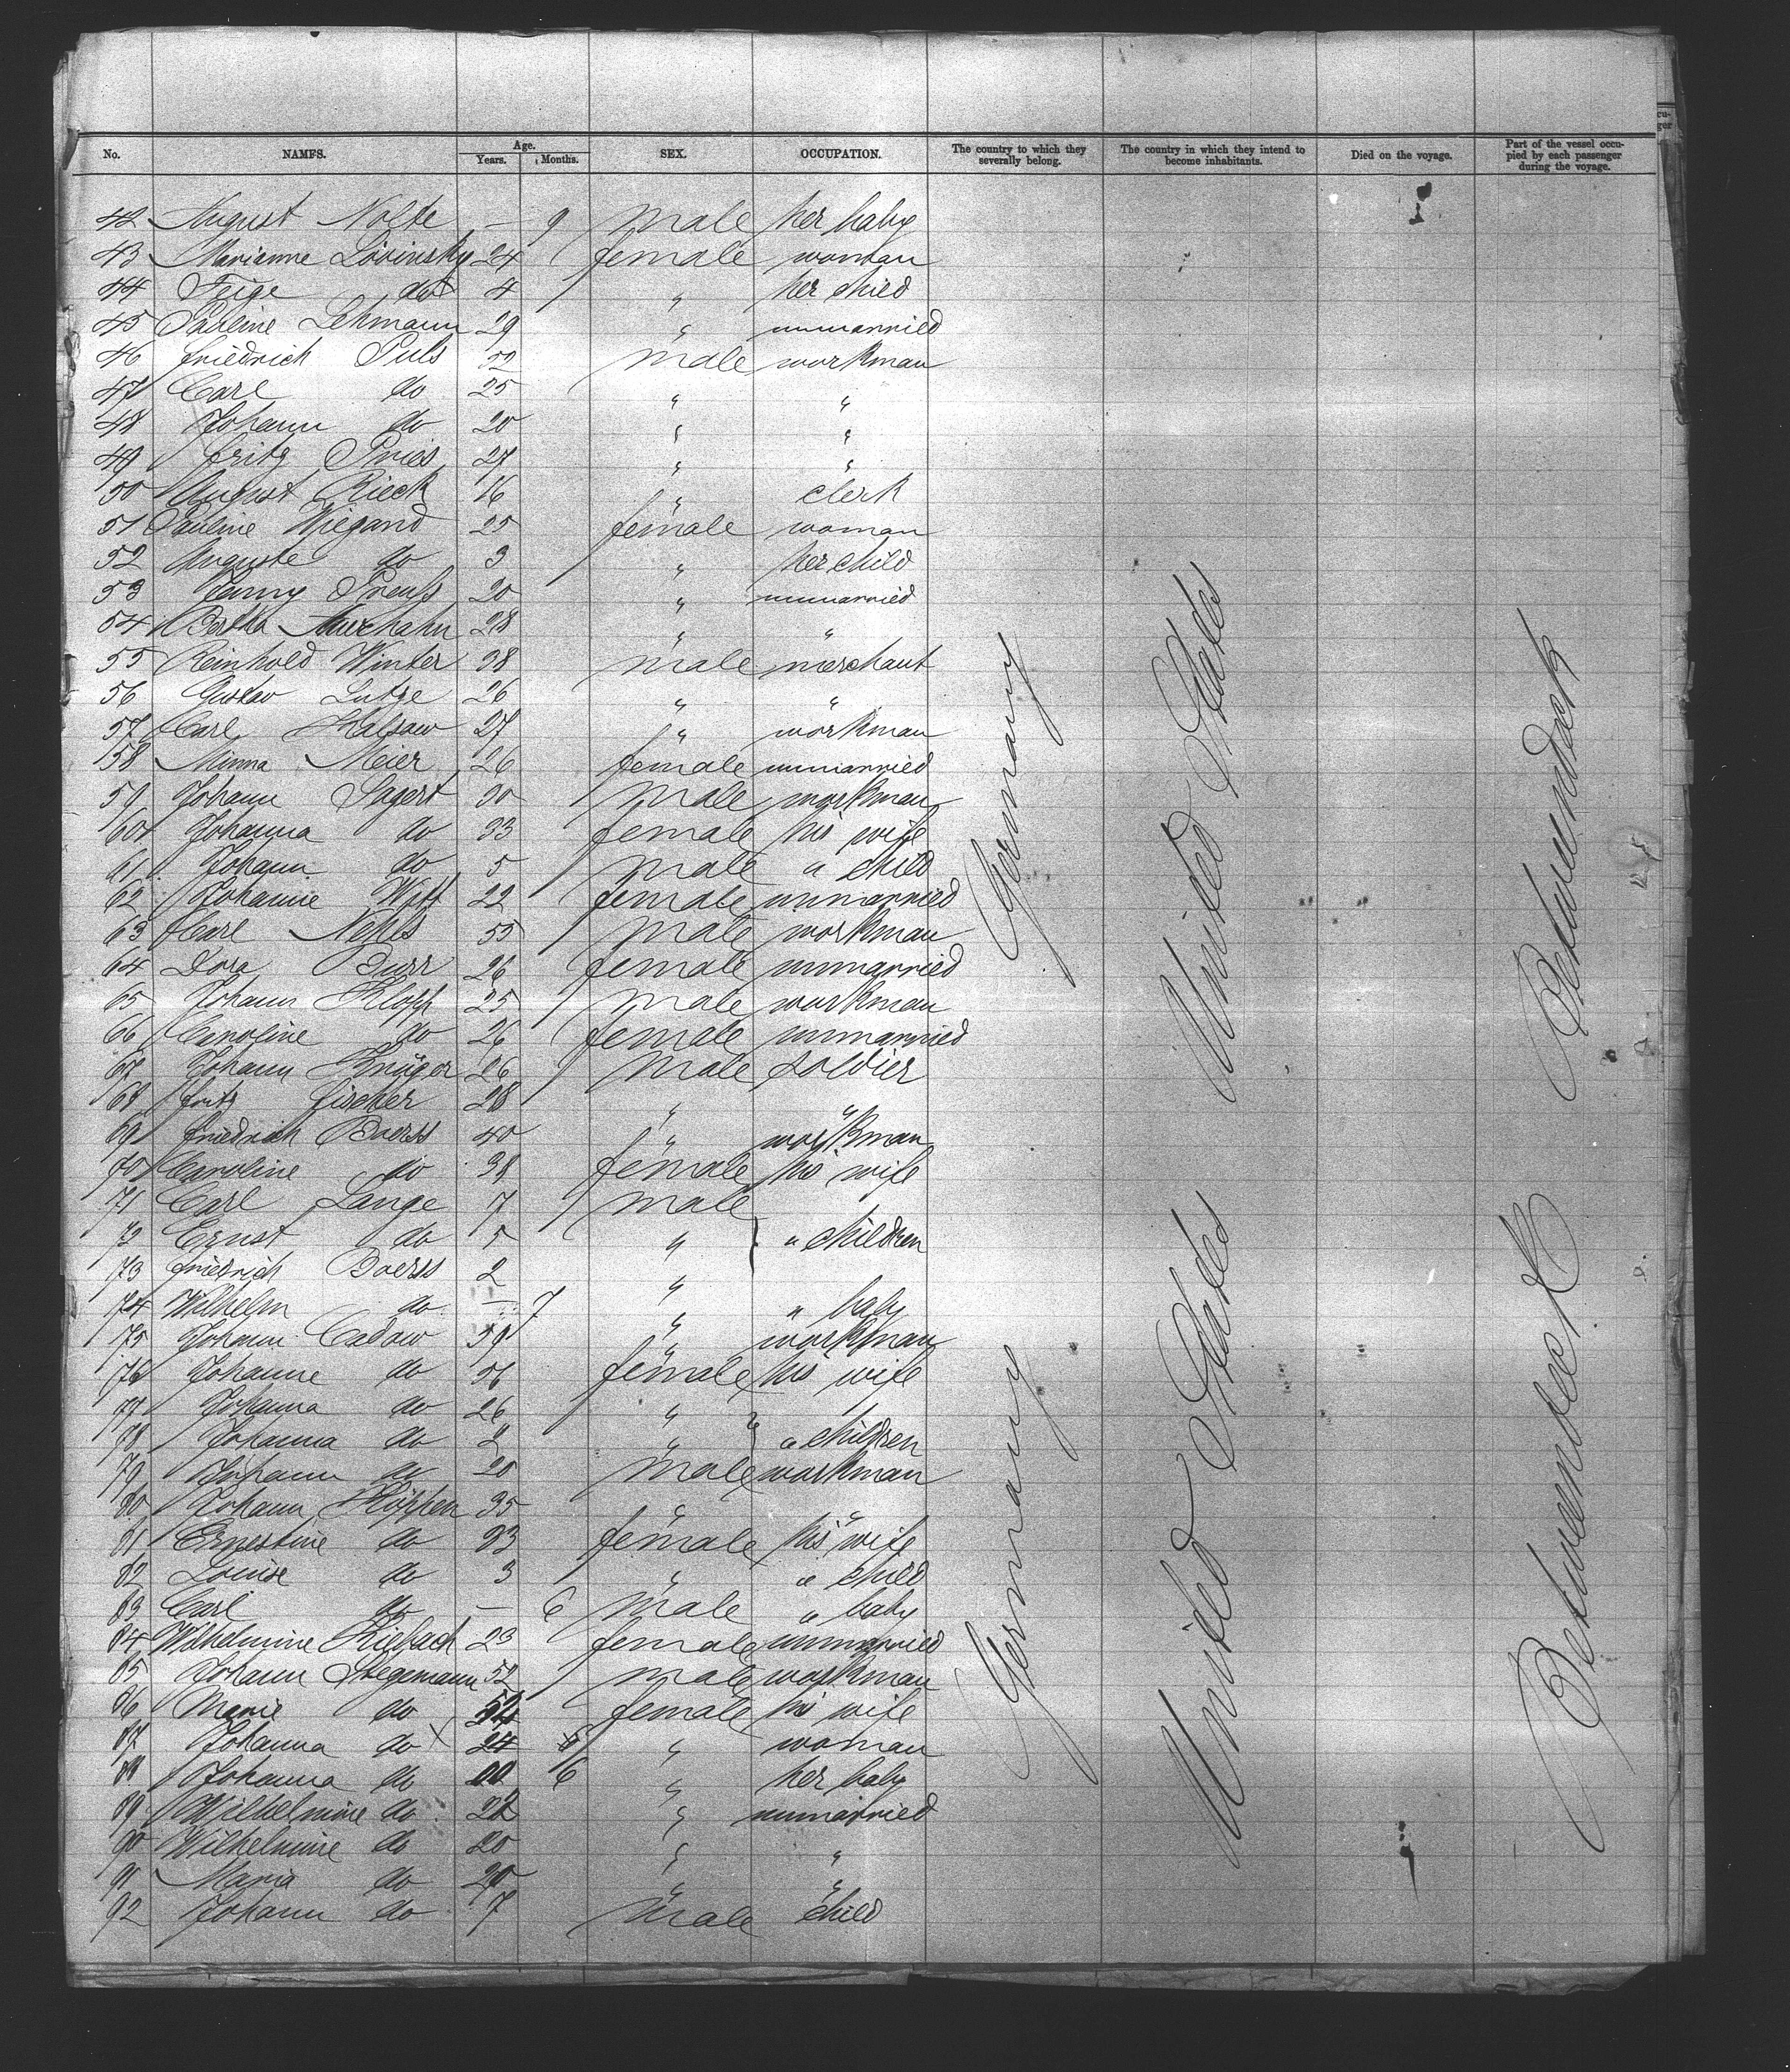 No. NAMES. Age. Years. Months. SEX. OCCUPATION. The country to which they severally belong. The country in which they intend to become inhabitants. Died on the voyage. Part of the vessel occupied by each passenger during the voyage.
42 August Nolte — 9 male her baby
43 Marianne Lövinsky 24 female woman
44 Feige do 4 " her child
45 Pauline Lehmann 29 " unmarried
46 Friedrich Puls 52 male workman
47 Carl do 25 " "
48 Johann do 20 " "
49 Fritz Pries 27 " "
50 August Rieck 16 " clerk
51 Pauline Wiegand 25 female woman
52 Auguste do 3 " her child
53 Jenny Preuß 20 " unmarried
54 Bertha Auerhahn 28 " "
55 Reinhold Winter 38 male merchant
56 Gustav Lutze 26 " "
57 Carl Halsaw 27 " workman
58 Minna Meier 26 female unmarried
59 Johann Sagert 30 male workman
60 Johanna do 33 female his wife
61 Johann do 5 male " child
62 Johanne Witt 22 female unmarried
63 Carl Nehls 55 male workman
64 Dora Durr 26 female unmarried
65 Johann Klopp 25 male workman
66 Caroline do 26 female unmarried
67 Johann Krüger 26 male soldier
68 Fritz Fischer 28 " "
69 Friedrich Boerss 40 " workman
70 Caroline do 38 female his wife
71 Carl Lange 7 male
72 Ernst do 5 " " children
73 Friedrich Boerss 2 "
74 Wilhelm do — 7 " " baby
75 Johann Cadow 59 " workman
76 Johanne do 56 female his wife
77 Johanna do 26 "
78 Johanna do 2 " " children
79 Johann do 20 male workman
80 Johann Köppen 35 " "
81 Ernestine do 33 female his wife
82 Louise do 3 " " child
83 Carl do — 6 male " baby
84 Wilhelmine Kiebach 23 female unmarried
85 Johann Stegemann 52 male workman
86 Marie do female his wife
87 Johanna do 24 " woman
88 Johanna do 6 " her baby
89 Wilhelmine do 22 " unmarried
90 Wilhelmine do 20 " "
91 Maria do 20 " "
92 Johann do 7 male child
Germany
United States
Betweendeck
Germany
United States
Betweendeck